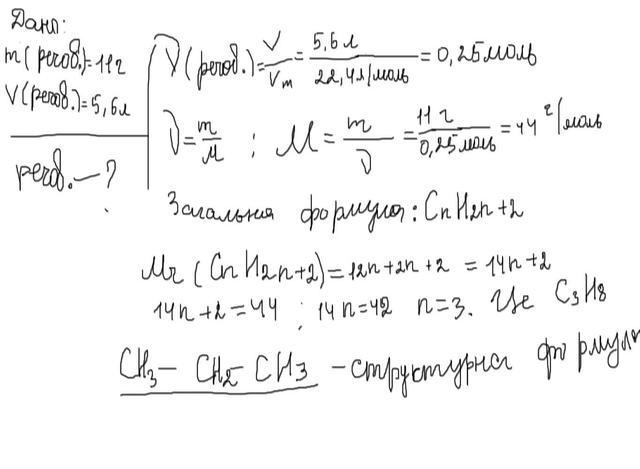 Дано:
m(речов.)=11г
V(речов.)=5,6л
речов. — ?
ν(речов.)=V/Vm=5,6л/22,4л/моль=0,25моль
ν=m/M ; M=m/ν=11г/0,25моль=44 г/моль
Загальна формула: CnH2n+2
Mr(CnH2n+2)=12n+2n+2=14n+2
14n+2=44 ; 14n=42 n=3. Це C3H8
CH3— CH2- CH3 -структурна формула